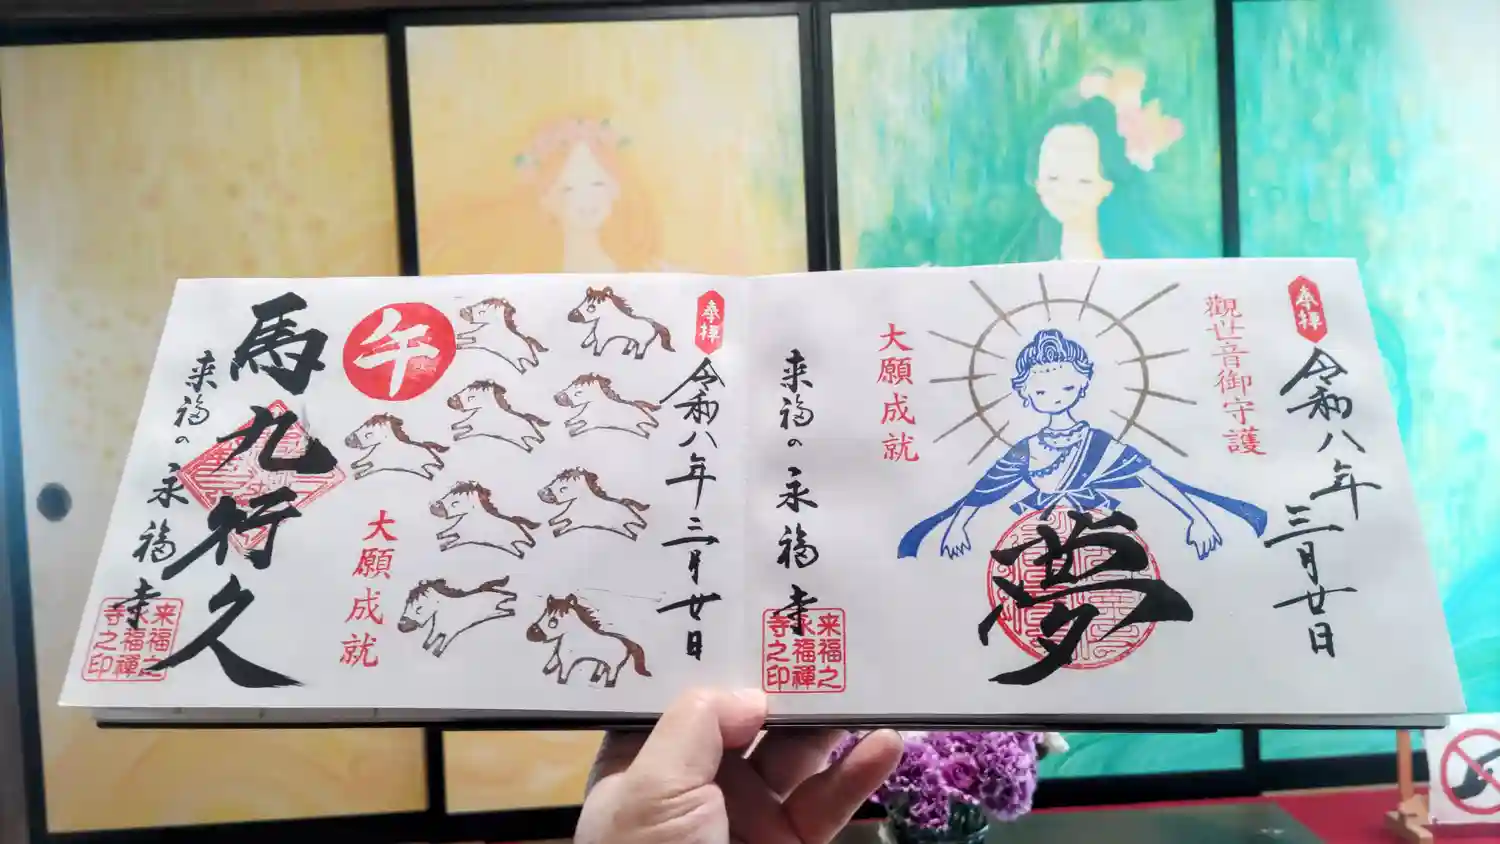 奉拝
令和八年三月廿日
觀世音御守護
夢
大願成就
来福の永福寺
来福之
永福禪
寺之印
奉拝
令和八年三月廿日
午
大願成就
馬九行久
来福の永福寺
来福之
永福禪
寺之印